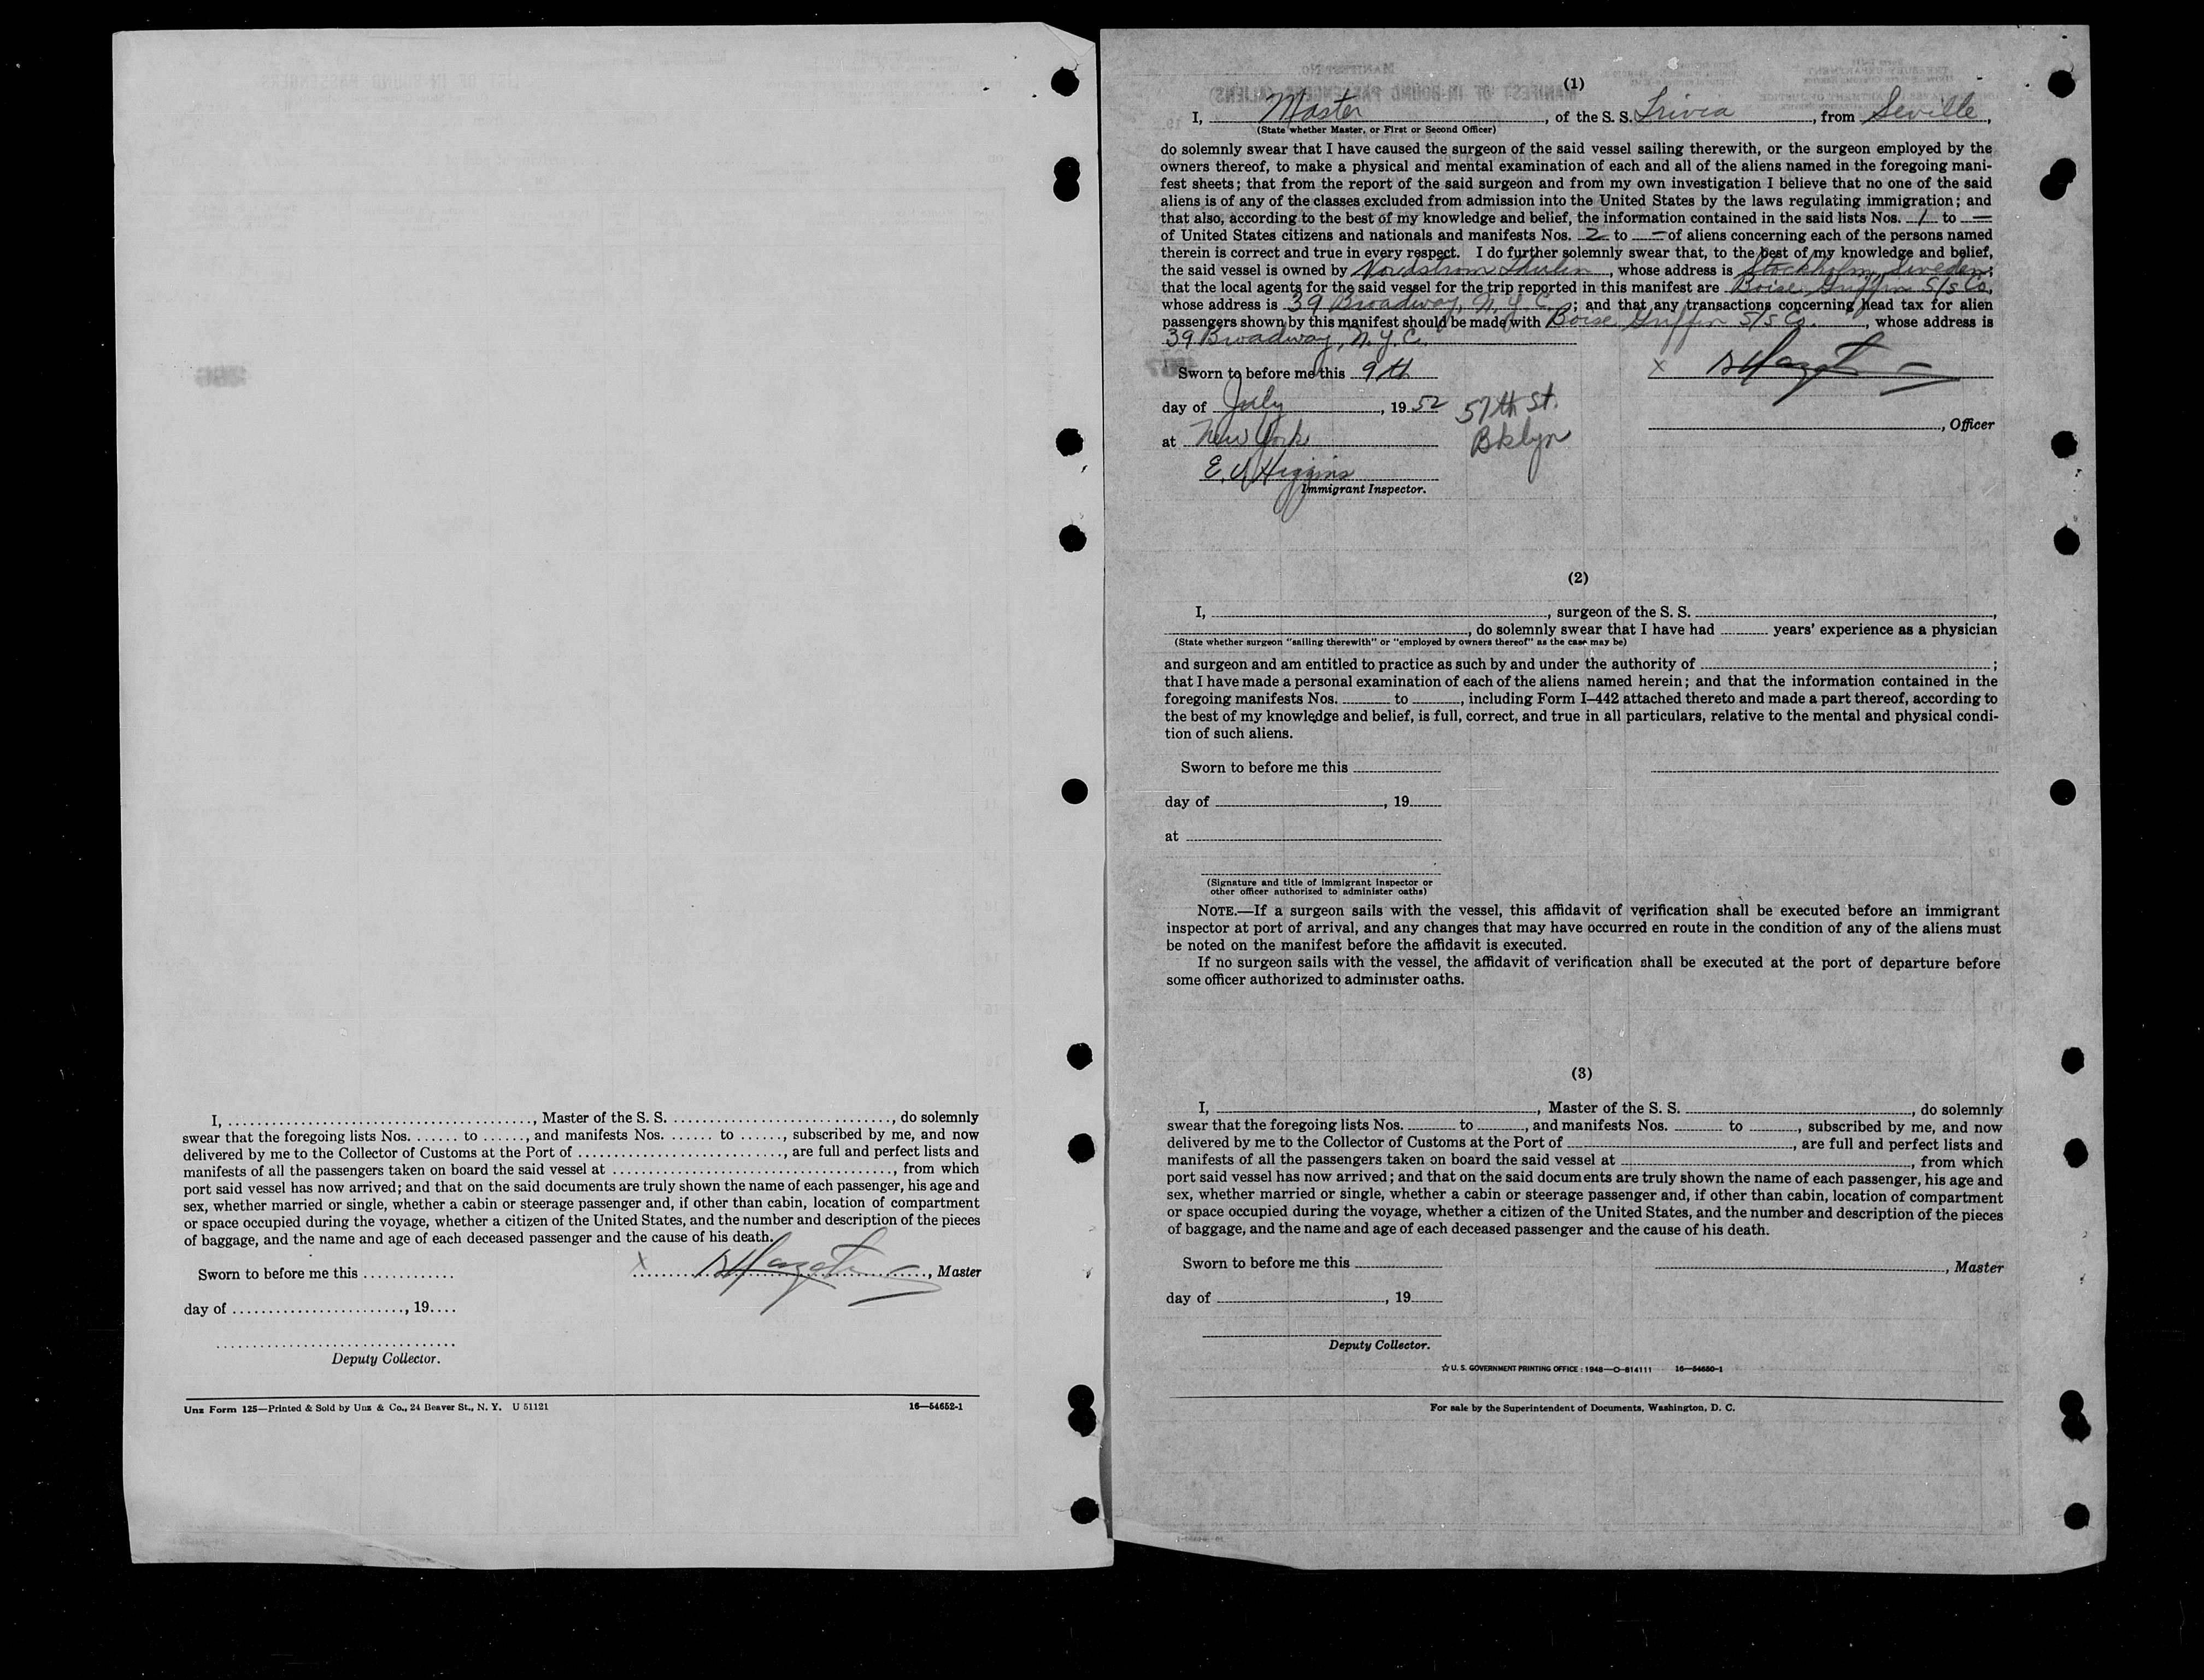 I, ........, Master of the S. S. ........, do solemnly
swear that the foregoing lists Nos. ....... to ......, and manifests Nos. ....... to ......, subscribed by me, and now
delivered by me to the Collector of Customs at the Port of ........, are full and perfect lists and
manifests of all the passengers taken on board the said vessel at ........, from which
port said vessel has now arrived; and that on the said documents are truly shown the name of each passenger, his age and
sex, whether married or single, whether a cabin or steerage passenger and, if other than cabin, location of compartment
or space occupied during the voyage, whether a citizen of the United States, and the number and description of the pieces
of baggage, and the name and age of each deceased passenger and the cause of his death.
Sworn to before me this .............
X ........, Master
day of ........, 19....
Deputy Collector.
Unz Form 125—Printed & Sold by Unz & Co., 24 Beaver St., N. Y. U 51121
16—54652-1
(1)
I, Master, of the S. S. Trivia, from Seville,
(State whether Master, or First or Second Officer)
do solemnly swear that I have caused the surgeon of the said vessel sailing therewith, or the surgeon employed by the
owners thereof, to make a physical and mental examination of each and all of the aliens named in the foregoing mani-
fest sheets; that from the report of the said surgeon and from my own investigation I believe that no one of the said
aliens is of any of the classes excluded from admission into the United States by the laws regulating immigration; and
that also, according to the best of my knowledge and belief, the information contained in the said lists Nos. 1 to —
of United States citizens and nationals and manifests Nos. 2 to — of aliens concerning each of the persons named
therein is correct and true in every respect. I do further solemnly swear that, to the best of my knowledge and belief,
the said vessel is owned by Nordstrom Thulin, whose address is Stockholm, Sweden;
that the local agents for the said vessel for the trip reported in this manifest are Boise Griffin S/S Co,
whose address is 39 Broadway, N.Y.C.; and that any transactions concerning head tax for alien
passengers shown by this manifest should be made with Boise Griffin S/S Co., whose address is
39 Broadway, N.Y.C.
Sworn to before me this 9th
X
day of July, 1952
57th St.
Bklyn
, Officer
at New York
E. Higgins
Immigrant Inspector.
(2)
I, ........, surgeon of the S. S. ........,
........, do solemnly swear that I have had ........ years' experience as a physician
(State whether surgeon "sailing therewith" or "employed by owners thereof" as the case may be)
and surgeon and am entitled to practice as such by and under the authority of ........;
that I have made a personal examination of each of the aliens named herein; and that the information contained in the
foregoing manifests Nos. ........ to ........, including Form I–442 attached thereto and made a part thereof, according to
the best of my knowledge and belief, is full, correct, and true in all particulars, relative to the mental and physical condi-
tion of such aliens.
Sworn to before me this ........
day of ........, 19......
at ........
(Signature and title of immigrant inspector or
other officer authorized to administer oaths)
NOTE.—If a surgeon sails with the vessel, this affidavit of verification shall be executed before an immigrant
inspector at port of arrival, and any changes that may have occurred en route in the condition of any of the aliens must
be noted on the manifest before the affidavit is executed.
If no surgeon sails with the vessel, the affidavit of verification shall be executed at the port of departure before
some officer authorized to administer oaths.
(3)
I, ........, Master of the S. S. ........, do solemnly
swear that the foregoing lists Nos. ........ to ........, and manifests Nos. ........ to ........, subscribed by me, and now
delivered by me to the Collector of Customs at the Port of ........, are full and perfect lists and
manifests of all the passengers taken on board the said vessel at ........, from which
port said vessel has now arrived; and that on the said documents are truly shown the name of each passenger, his age and
sex, whether married or single, whether a cabin or steerage passenger and, if other than cabin, location of compartment
or space occupied during the voyage, whether a citizen of the United States, and the number and description of the pieces
of baggage, and the name and age of each deceased passenger and the cause of his death.
Sworn to before me this ........
........, Master
day of ........, 19......
Deputy Collector.
☆ U. S. GOVERNMENT PRINTING OFFICE : 1948—O-814111 16—54650-1
For sale by the Superintendent of Documents, Washington, D. C.